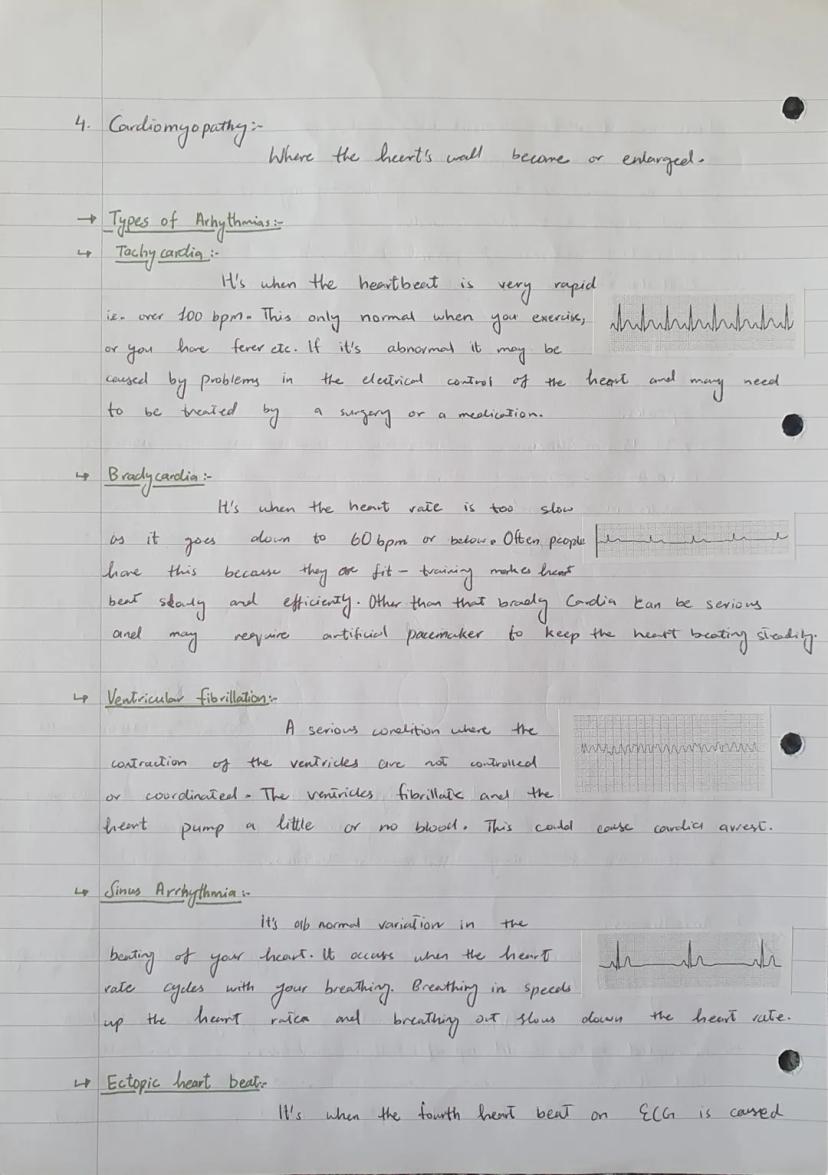 4. Cardiomyopathy:-
Where the heert's wall become or enlarged.
→ Types of Arhythmias:-
↳ Tachycardia:-
It's when the heartbeat is very rapid
ie. over 100 bpm. This only normal when you exercise,
or you have fever etc. If it's abnormal it may be
caused by problems in the electrical control of the heart and may need
to be treated by a surgery or a medication.
↳ Bradycardia:-
It's when the heart rate is too slow
as it goes down to 60 bpm or below. Often people
have this because they are fit - training makes heart
beat slowly and efficiently. Other than that brady Cardia can be serious
and may require artificial pacemaker to keep the heart beating steadily.
↳ Ventricular fibrillation:-
A serious condition where the
contraction of the ventricles are not controlled
or coordinated. The ventricles fibrillate and the
heart pump a little or no blood. This could cause cardiac arrest.
↳ Sinus Arrhythmia:-
It's normal variation in the
beating of your heart. It occurs when the heart
rate cycles with your breathing. Breathing in speeds
up the heart and breathing out slows down the heart rate.
↳ Ectopic heart beat:-
It's when the fourth heart beat on ECG is caused